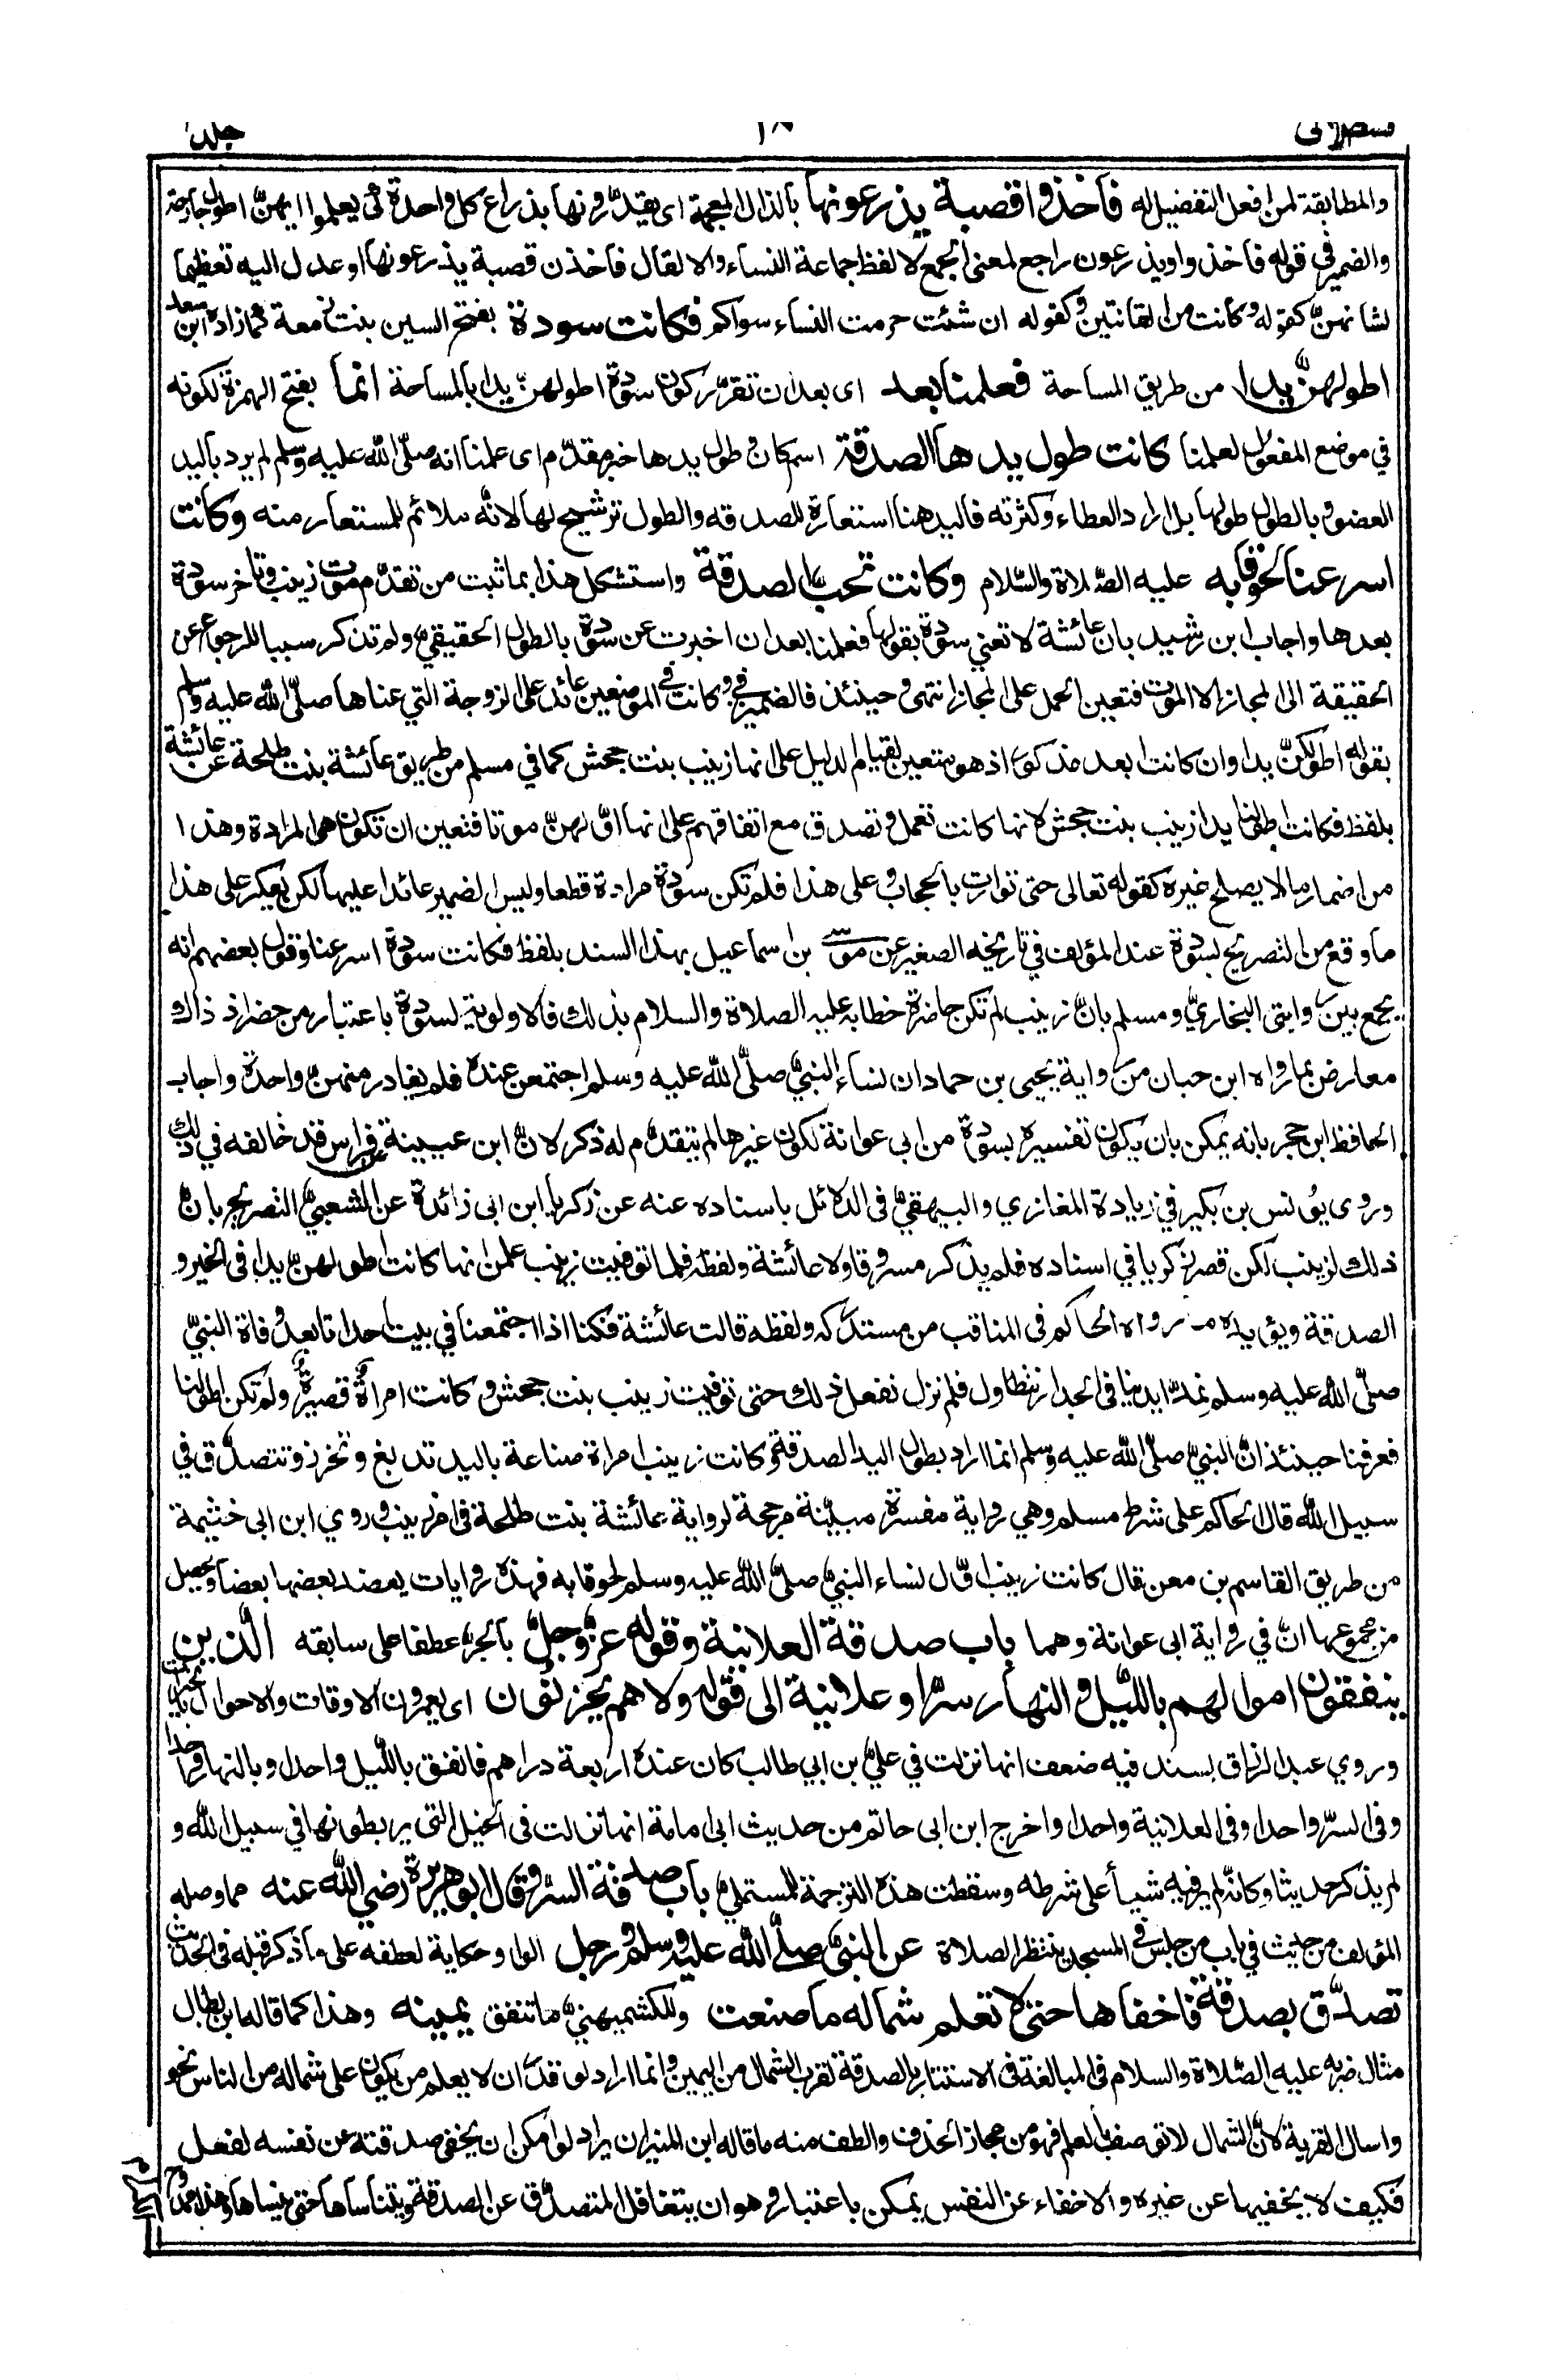 قسطلانى ١٨ جلد
والمطابقة لمن افعل التفضيل له فأخذوا قصبة يذرعونها بالذال المعجمة اى يقدّرونها بذراع كل واحدة كى يعلموا ايهنّ اطول جارحة
والضمير فى قوله فاخذوا ويذرعون راجع لمعنى الجمع لا لفظ جماعة النساء والا لقال فاخذن قصبة يذرعونها او عدل اليه تعظيما
لشانهنّ كقوله وكانت من القانتين وكقوله ان شئت حرمت النساء سواكم فكانت سودة بفتح السين بنت زمعة كما زاده ابن سعد
اطولهنّ يدا من طريق المساحة فعلمنا بعد اى بعد ان تقرّر كون سودة اطولهن يدا بالمساحة انما بفتح الهمزة لكونه
في موضع المفعول لعلمنا كانت طول يدها الصدقة اسم كان وطول يدها خبر مقدّم اى علمنا انه صلّى الله عليه وسلم لم يرد باليد
العضو وبالطول طولها بل اراد العطاء وكثرته فاليد هنا استعارة للصدقه والطول ترشيح لها لانّه ملائم للمستعار منه وكانت
اسرعنا لحوقا به عليه الصّلاة والسّلام وكانت تحبّ الصدقة واستشكل هذا بما ثبت من تقدّم موت زينب وتاخر سودة
بعدها واجاب ابن رشيد بان عائشة لا تعني سودة بقولها فعلمنا بعد ان اخبرت عن سودة بالطول الحقيقيّ ولم تذكر سببا للرجوع عن
الحقيقة الى المجاز الا الموت فتعين الحمل على المجاز انتهى وحينئذ فالضمير في وكانت في الموضعين عائد على الزوجة التي عناها صلّى الله عليه وسلم
بقوله اطولكنّ يدا وان كانت لم بعد مذكور اذ هو متعين لقيام الدليل على انها زينب بنت جحش كما في مسلم من طريق عائشة بنت طلحة عن عائشة
بلفظ فكانت اطولنا يدا زينب بنت جحش لانها كانت تعمل وتصدق مع اتفاقهم على انها اوّلهنّ موتا فتعين ان تكون هى المرادة وهذا
من اضمار ما لا يصلح غيره كقوله تعالى حتى توارت بالحجاب وعلى هذا فلم تكن سودة مرادة قطعا وليس الضمير عائدا عليها لكن يعكر على هذا
ما وقع من التصريح بسودة عند المؤلف في تاريخه الصغير عن موسى بن اسماعيل بهذا السند بلفظ فكانت سودة اسرعنا وقول بعضهم انه
يجمع بين روايتى البخاريّ ومسلم بانّ زينب لم تكن حاضرة خطابه عليه الصلاة والسلام بذلك فالاولوية لسودة باعتبار من حضر اذ ذاك
معارض بما رواه ابن حبان من رواية يحيى بن حماد ان نساء النبيّ صلّى الله عليه وسلم اجتمعن عنده فلم يغادر منهنّ واحدة واجاب
الحافظ ابن حجر بانه يمكن بان يكون تفسيره بسودة من ابى عوانة لكون غيرها لم يتقدّم له ذكر لانّ ابن عيينة عن فراس قد خالفه في ذلك
وروى يونس بن بكير في زيادة المغازي والبيهقيّ فى الدلائل باسناده عنه عن زكريا ابن ابى زائدة عن الشعبيّ التصريح بانّ
ذلك لزينب لكن قصر زكريا في اسناده فلم يذكر مسروقا ولا عائشة ولفظه فلما توفيت زينب علمن انها كانت اطولهنّ يدا فى الخير و
الصدقة ويؤيده ما رواه الحاكم فى المناقب من مستدركه ولفظه قالت عائشة فكنا اذا اجتمعنا في بيت احدانا بعد وفاة النبيّ
صلّى الله عليه وسلم نمدّ ايدينا فى الجدار نتطاول فلم نزل نفعل ذلك حتى توفيت زينب بنت جحش وكانت امراةً قصيرةً ولم تكن اطولنا
فعرفنا حينئذ انّ النبيّ صلّى الله عليه وسلم انما اراد بطول اليد الصدقة وكانت زينب امراة صناعة باليد تدبغ وتخرز وتتصدّق في
سبيل الله قال الحاكم على شرط مسلم وهي رواية مفسرة مبيّنة مرجحة لرواية عائشة بنت طلحة فى امر زينب وروي ابن ابى خثيمة
من طريق القاسم بن معن قال كانت زينب اوّل نساء النبيّ صلّى الله عليه وسلم لحوقا به فهذه روايات يعضد بعضها بعضا ويحصل
من مجموعها انّ في رواية ابى عوانة وهما باب صدقة العلانية وقوله عزّ وجلّ بالجرّ عطفا على سابقه الّذين
ينفقون اموالهم باللّيل والنهار سرّا وعلانية الى قوله ولا هم يحزنون اى يعمرون الاوقات والاحوال بالخيرات
وروي عبد الرزاق بسند فيه ضعف انها نزلت في عليّ بن ابي طالب كان عنده اربعة دراهم فانفق باللّيل واحدا وبالنهار واحدا
وفى السرّ واحدا وفى العلانية واحدا واخرج ابن ابى حاتم من حديث ابى امامة انها نزلت فى الخيل التى يربطونها في سبيل الله و
لم يذكر حديثا وكانّه لم ير فيه شيأ على شرطه وسقطت هذه الترجمة للمستملي باب صدقة السرّ وقال ابو هريرة رضي الله عنه مما وصله
المؤلف من حديث في باب من جلس فى المسجد ينتظر الصلاة عن النبيّ صلّى الله عليه وسلم ورجل الواو حكاية لعطفه على ما ذكر قبله فى الحديث
تصدّق بصدقة فاخفاها حتى لا تعلم شماله ما صنعت وللكشميهنيّ ما تنفق يمينه وهذا كما قاله ابن بطال
مثال ضربه عليه الصّلاة والسلام فى المبالغة فى الاستتار بالصدقة لقرب الشمال من اليمين وانما اراد لو قدر ان لا يعلم من يكون على شماله من الناس نحو
واسال القرية لانّ الشمال لا توصف بالعلم فهو من مجاز الحذف والطف منه ما قاله ابن المنير ان يراد لو امكن ان يخفى صدقته عن نفسه لفعل
فكيف لا يخفيها عن غيره والاخفاء عن النفس يمكن باعتبار وهو ان يتغافل المتصدّق عن الصدقة ويتناساها حتى ينساها وهذا ممدوح